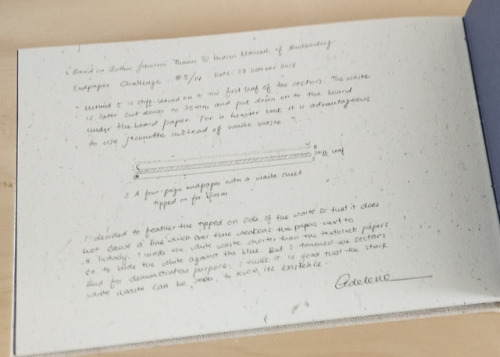 Based on Arthur Johnson Thames & Hudson Manual of Bookbinding
Endpaper Challenge #3/14 Date:
Method is stiff leaved on a first leaf of the sections. The waste
is later cut down to 35mm and put down on to the board
under the board paper. For a heavier book it is advantageous
to use jaconette instead of waste
stiff leaf
A four-page endpaper with a waste sheet
tipped on for 6mm
I decided to feather the tipped on side of the waste so that it does
not cause a line which over time weakens the papers next to
it. I made the white waste shorter than the papers
so to hide the white against the blue. But I trimmed the sections
for demonstration purpose. I think it is good that the
white waste can be seen to know its existence.
Adelene